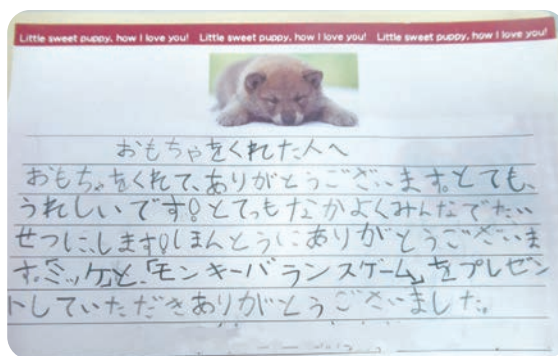 Little sweet puppy, how I love you! Little sweet puppy, how I love you! Little sweet puppy, how I love you!
おもちゃをくれた人へ
おもちゃをくれて、ありがとうございます。とても、
うれしいです！とてもなかよくみんなでたい
せつにします！ほんとうにありがとうございま
す。「ミッケ」と、「モンキーバランスゲーム」をプレゼン
トしていただきありがとうございました。